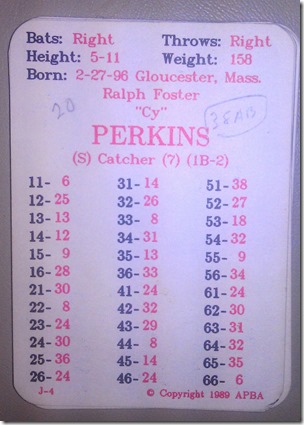 Bats: Right Throws: Right
Height: 5-11 Weight: 158
Born: 2-27-96 Gloucester, Mass.
Ralph Foster
20 "Cy" 38AB
PERKINS
(S) Catcher (7) (1B-2)
11- 6 31- 14 51- 38
12- 25 32- 26 52- 27
13- 13 33- 8 53- 18
14- 12 34- 31 54- 32
15- 9 35- 13 55- 9
16- 28 36- 33 56- 34
21- 30 41- 24 61- 24
22- 8 42- 32 62- 30
23- 24 43- 29 63- 31
24- 30 44- 8 64- 32
25- 36 45- 14 65- 35
26- 24 46- 24 66- 6
J-4 © Copyright 1989 APBA